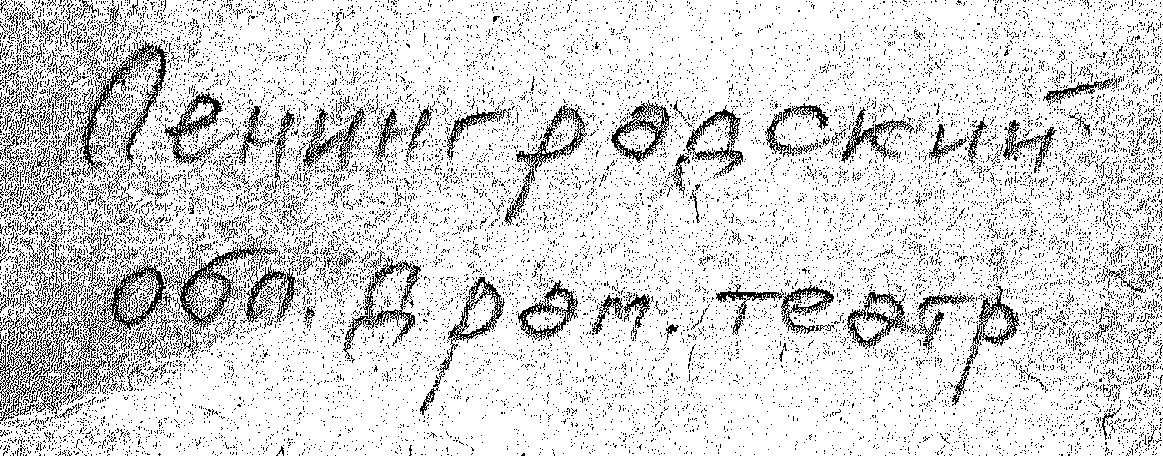 Ленинградский
обл. драм. театр